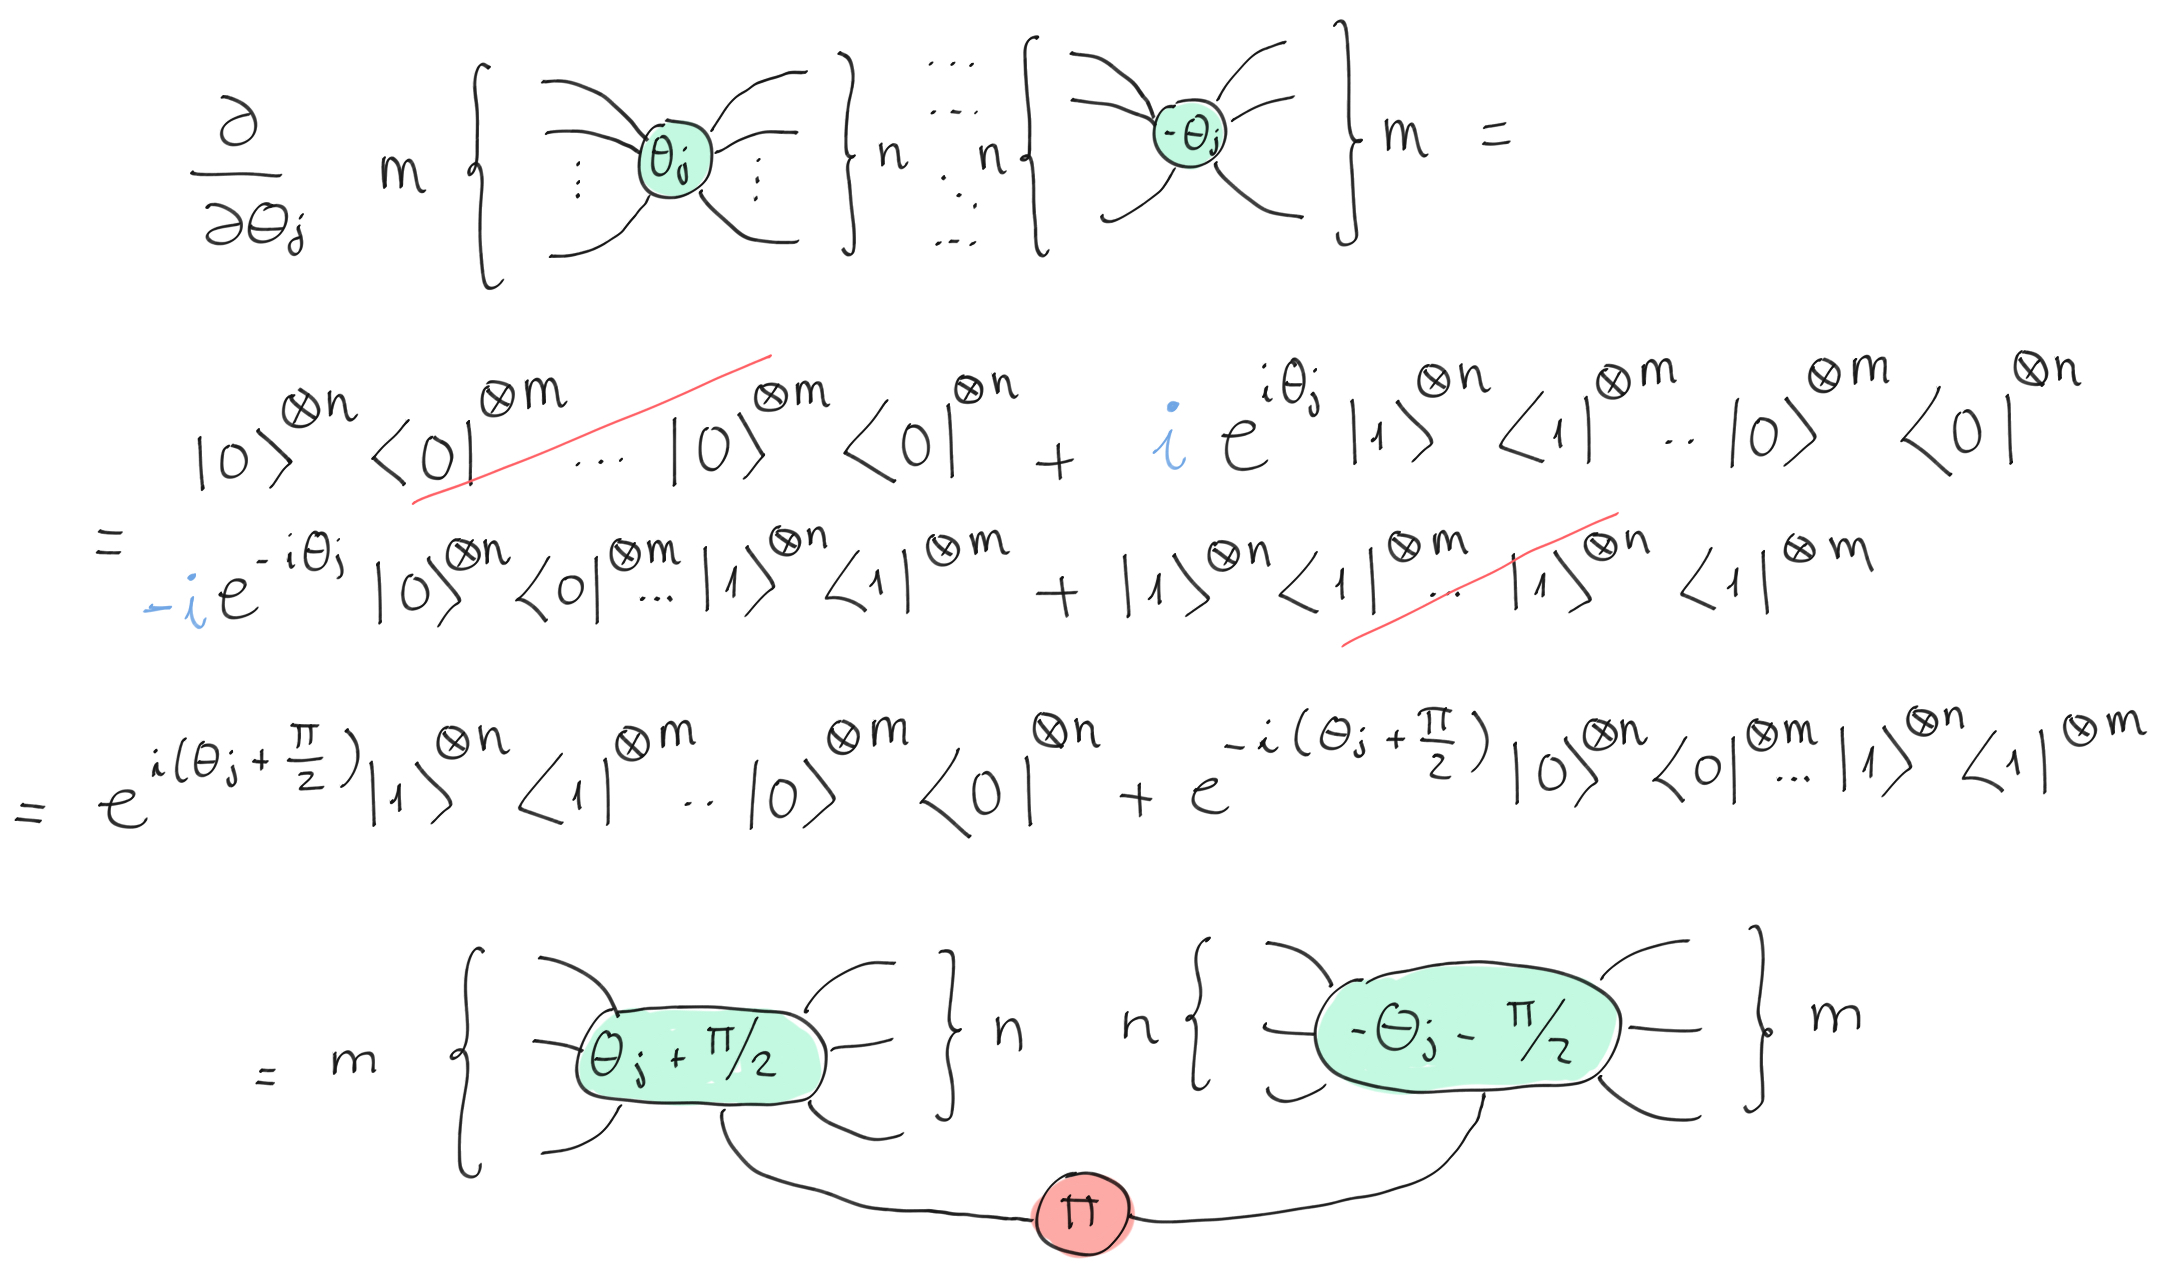 ∂/∂θⱼ m { θⱼ } n ... n { -θⱼ } m =
|0⟩^⊗n ⟨0|^⊗m ... |0⟩^⊗m ⟨0|^⊗n + i e^{iθⱼ} |1⟩^⊗n ⟨1|^⊗m .. |0⟩^⊗m ⟨0|^⊗n
= -i e^{-iθⱼ} |0⟩^⊗n ⟨0|^⊗m ... |1⟩^⊗n ⟨1|^⊗m + |1⟩^⊗n ⟨1|^⊗m .. |1⟩^⊗n ⟨1|^⊗m
= e^{i(θⱼ + π/2)} |1⟩^⊗n ⟨1|^⊗m .. |0⟩^⊗m ⟨0|^⊗n + e^{-i(θⱼ + π/2)} |0⟩^⊗n ⟨0|^⊗m ... |1⟩^⊗n ⟨1|^⊗m
= m { θⱼ + π/2 } n n { -θⱼ - π/2 } m
π